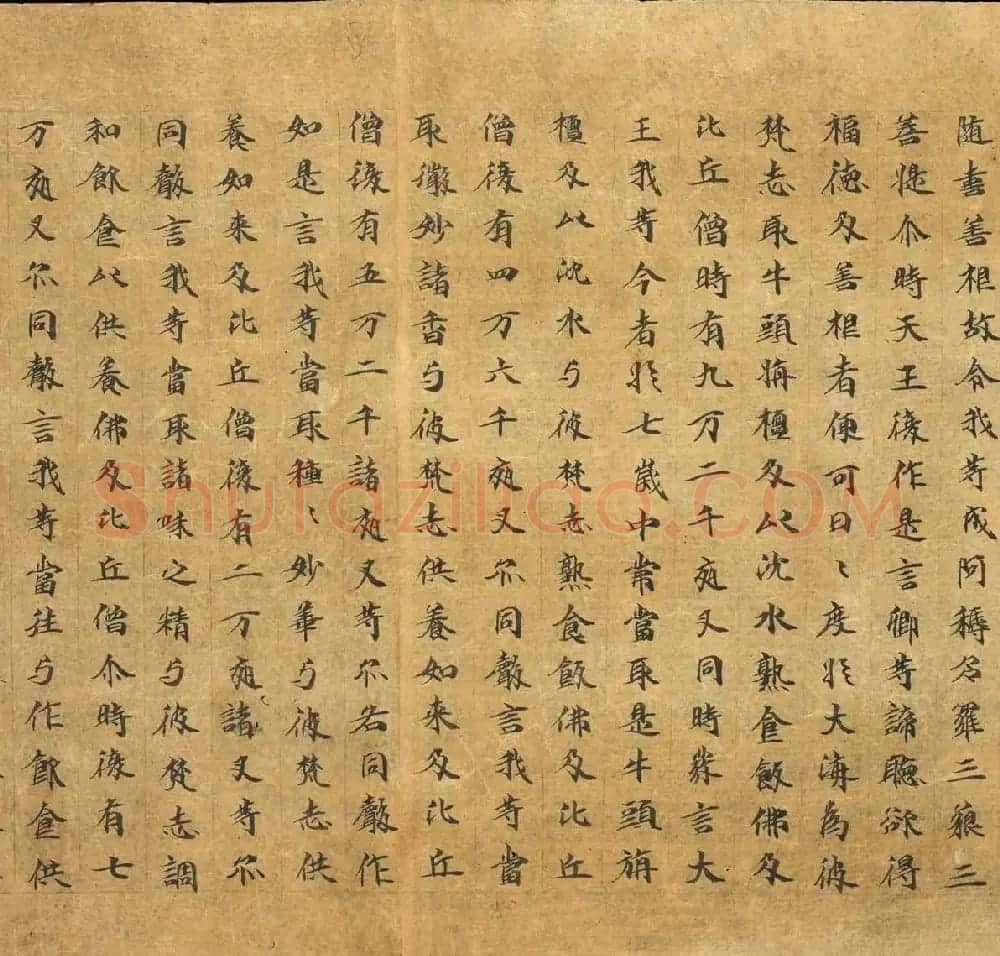 随喜善根故令我等成阿耨多羅三藐三
菩提尒時天王復作是言卿等諦聽欲得
福德及善根者便可日〻度於大海為彼
梵志取牛頭栴檀及以沈水熟食飯佛及
比丘僧時有九万二千夜叉同時發言大
王我等今者於七歲中常當取是牛頭旃
檀及以沈水与彼梵志熟食飯佛及比丘
僧復有四万六千夜叉亦同聲言我等當
取微妙諸香与彼梵志供養如来及比丘
僧復有五万二千諸夜叉等亦各同聲作
如是言我等當取種〻妙華与彼梵志供
養如来及比丘僧復有二万夜諸叉等亦
同聲言我等當取諸味之精与彼梵志調
和飲食以供養佛及比丘僧尒時復有七
万夜叉亦同聲言我等當往与作飲食供
Shufaziliao.COM